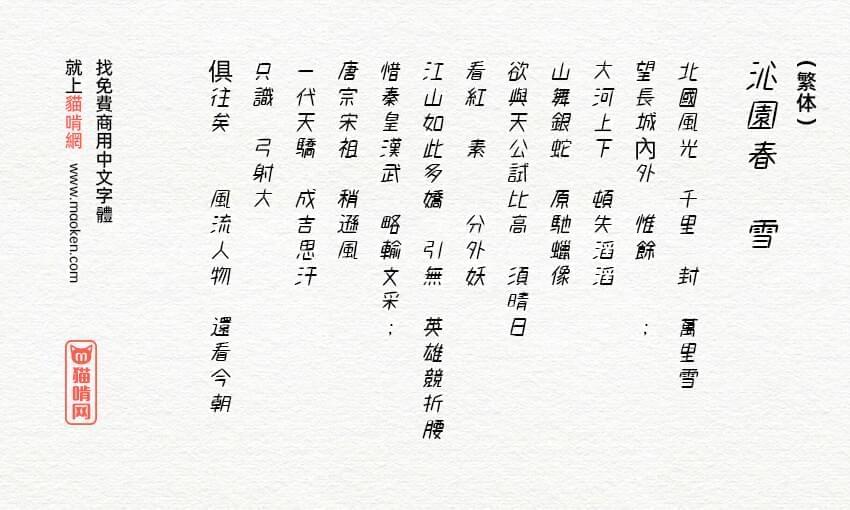 (繁体)
沁園春 雪
北國風光 千里 封 萬里雪
望長城內外 惟餘 ；
大河上下 頓失滔滔
山舞銀蛇 原馳蠟像
欲與天公試比高 須晴日
看紅 素 分外妖
江山如此多嬌 引無 英雄競折腰
惜秦皇漢武 略輸文采；
唐宗宋祖 稍遜風
一代天驕 成吉思汗
只識 弓射大
俱往矣 風流人物 還看今朝
找免費商用中文字體
就上貓啃網 www.maoken.com
貓啃网